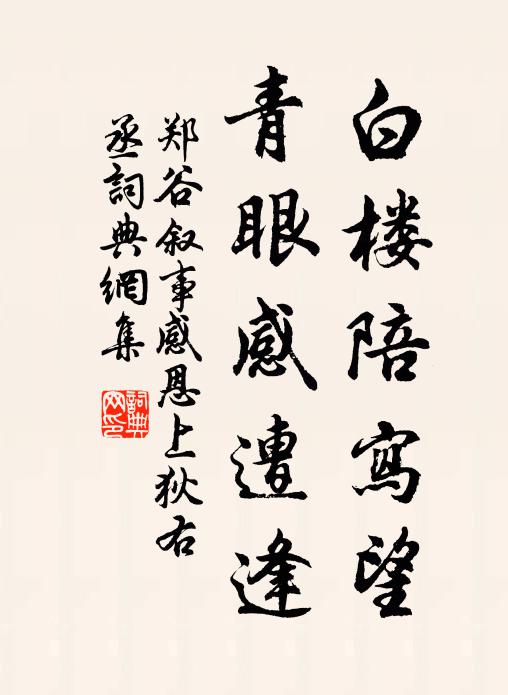 白楼陪寫望
青眼感遭逢
郑谷叙事感恩上狄右
丞詞典網集
詞典
网印